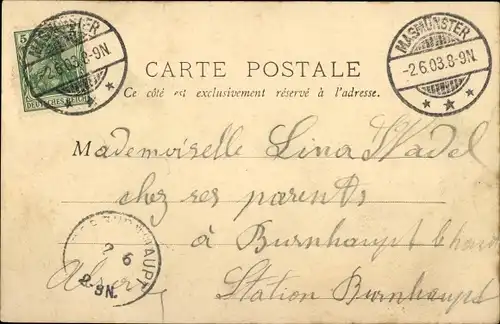 5
DEUTSCHES REICH
MASMÜNSTER
-2.6.03.8-9N.
MASMÜNSTER
-2.6.03.8-9N.
CARTE POSTALE
Ce côté est exclusivement réservé à l'adresse.
Mademoiselle Lina Nadel
chez ses parents
à Burnhaupt le haut
Station Burnhaupt
HAUPT
2
6
8-9N.